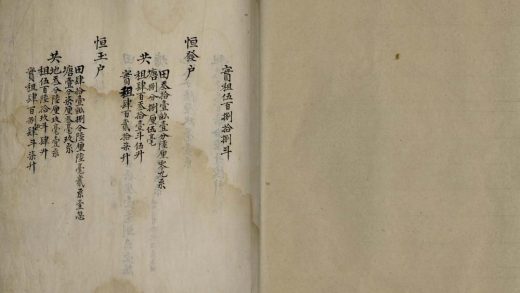 實租伍百捌拾捌斗
恒發户
田叁拾壹畝壹分陸厘零九系
塘捌分捌厘伍毫
共
租肆百叁拾壹斗伍升
實租肆百貳拾柒升
恒玉户
田肆拾壹畝捌分陸厘陸毫貳系壹忽
塘壹分柒厘叁毫玖系
地叁分陸厘玖毫壹系
共
租伍百陸拾玖斗肆升
實租肆百捌肆斗柒升